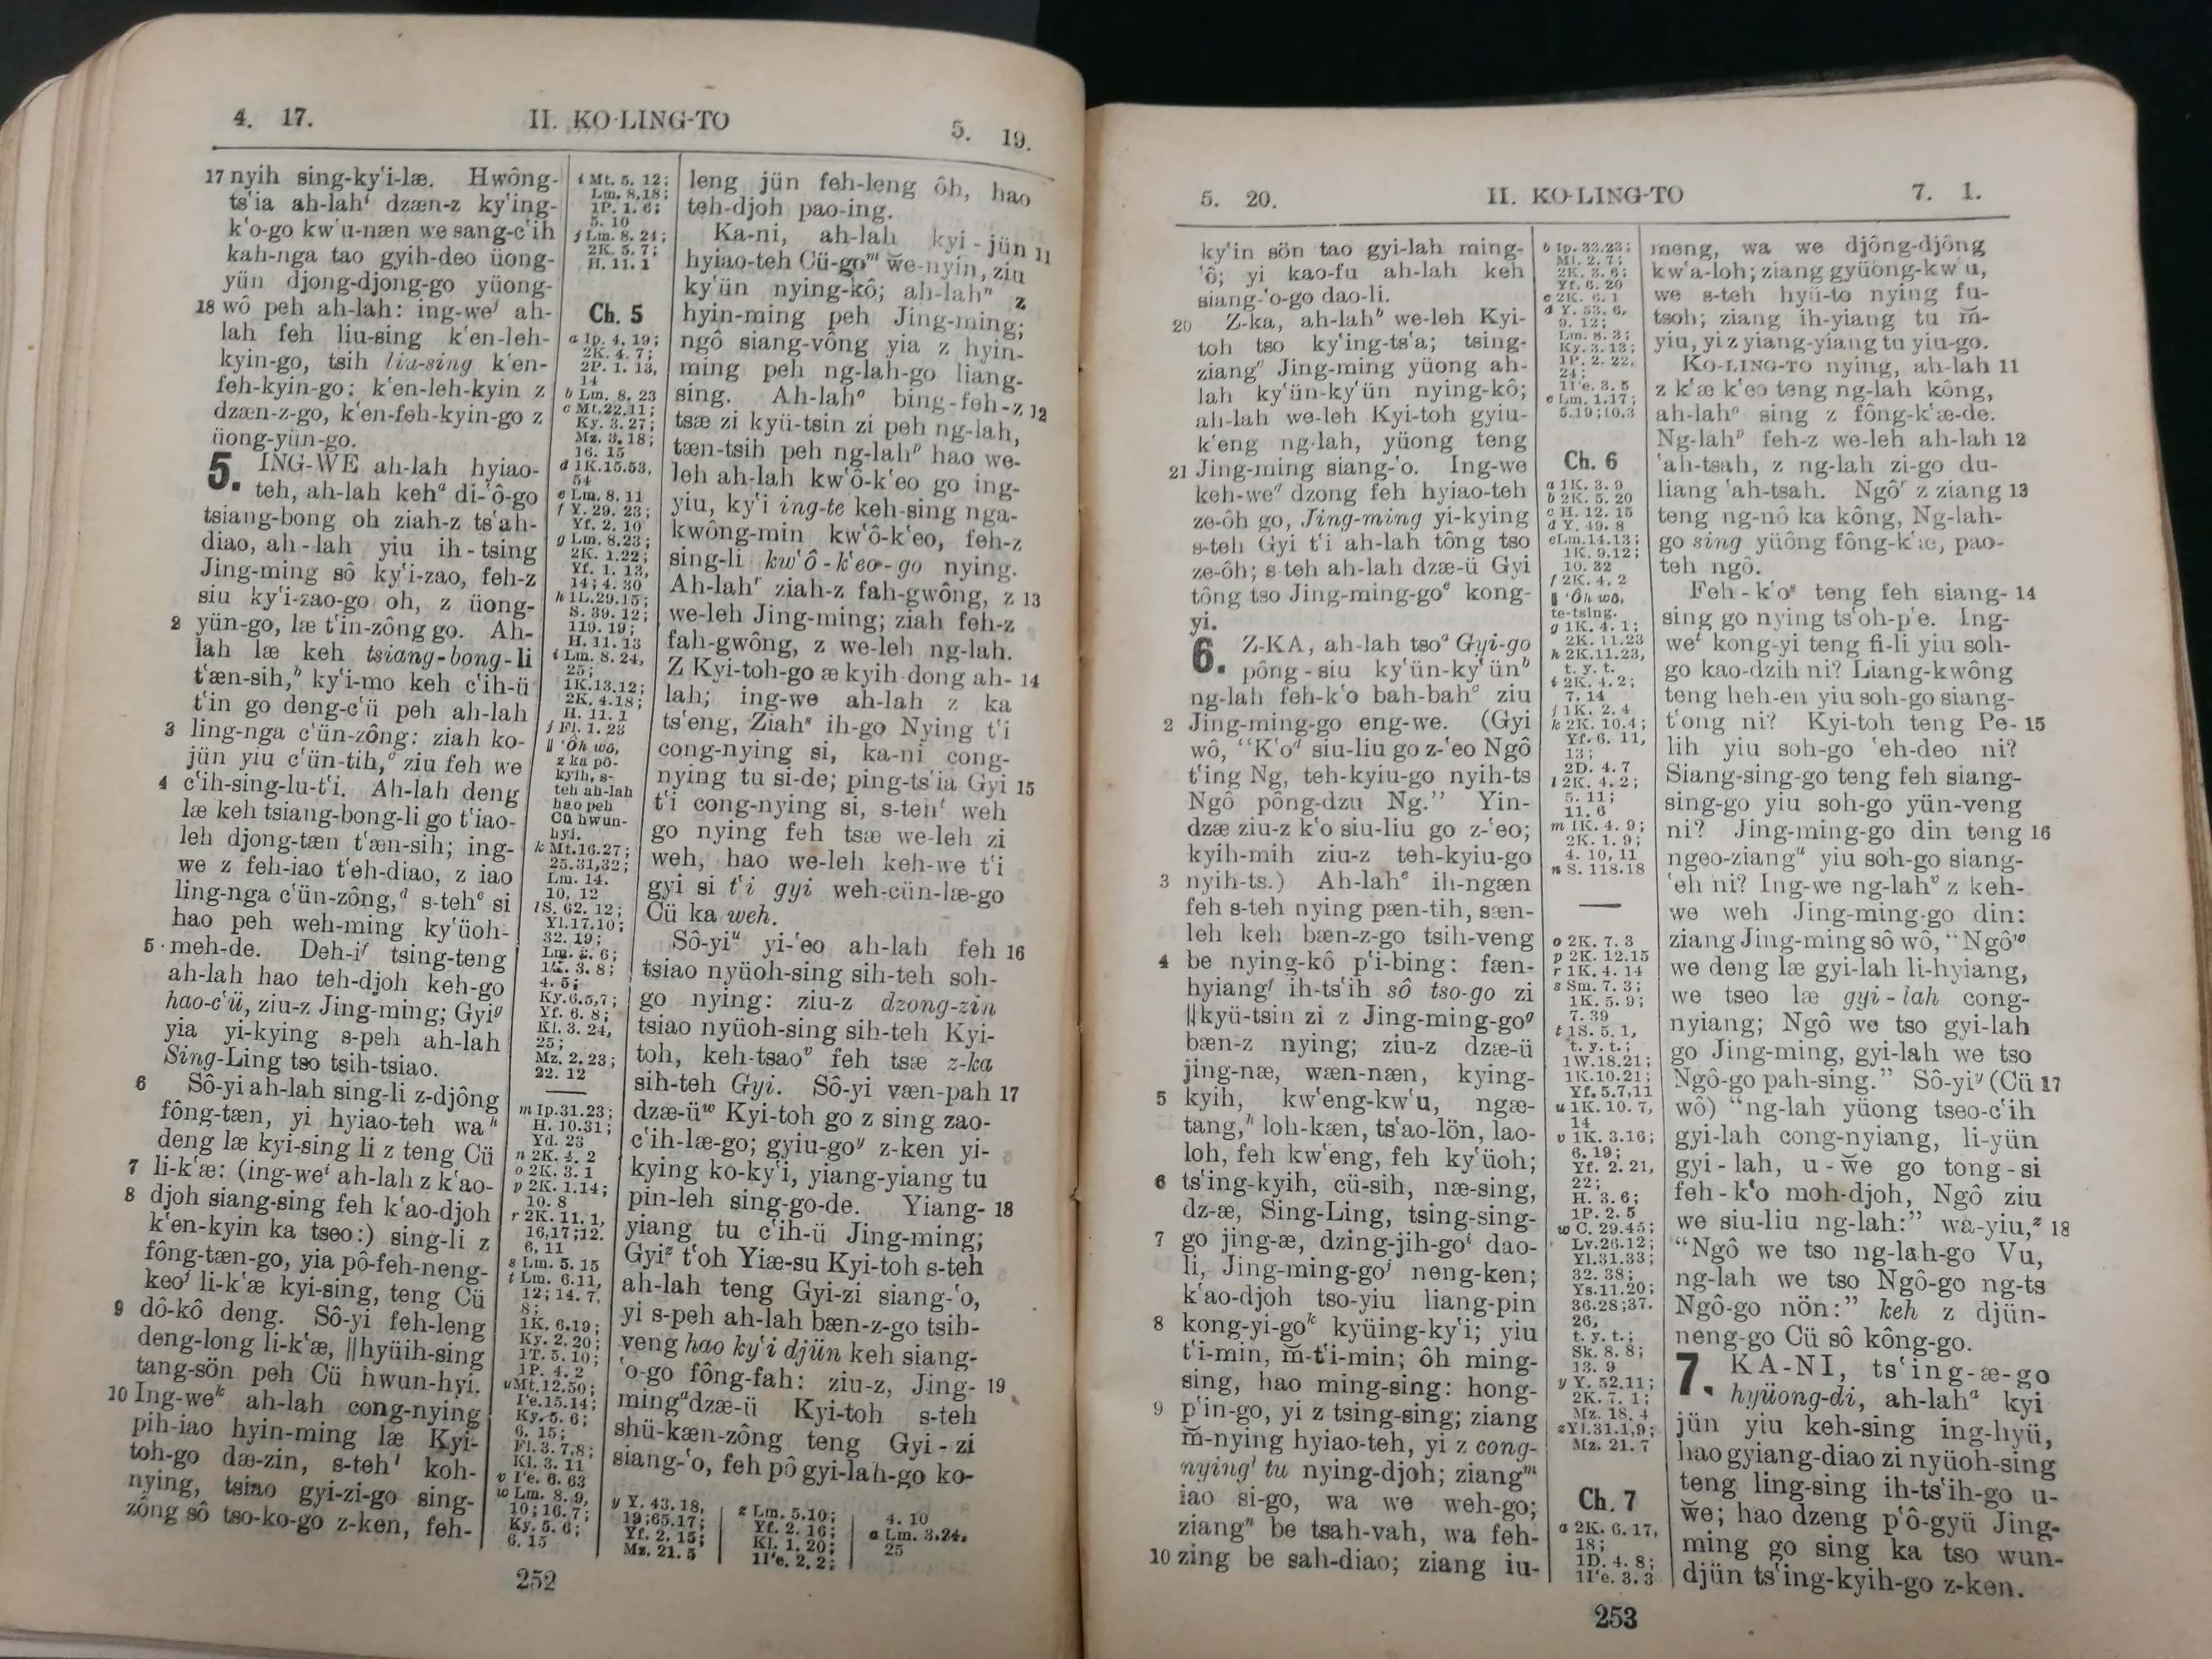 4. 17. II. KO-LING-TO 5. 19.
17 nyih sing-ky‘i-læ. Hwông-
ts‘ia ah-lahⁱ dzæn-z ky‘ing-
k‘o-go kw‘u-næn we sang-c‘ih
kah-nga tao gyih-deo üong-
yün djong-djong-go yüong-
18 wô peh ah-lah: ing-weʲ ah-
lah feh liu-sing k‘en-leh-
kyin-go, tsih liu-sing k‘en-
feh-kyin-go: k‘en-leh-kyin z
dzæn-z-go, k‘en-feh-kyin-go z
üong-yün-go.
5. ING-WE ah-lah hyiao-
teh, ah-lah kehᵃ di-‘ô-go
tsiang-bong oh ziah-z ts‘ah-
diao, ah-lah yiu ih-tsing
Jing-ming sô ky‘i-zao, feh-z
siu ky‘i-zao-go oh, z üong-
2 yün-go, læ t‘in-zông go. Ah-
lah læ keh tsiang-bong-li
t‘æn-sih,ᵇ ky‘i-mo keh c‘ih-ü
t‘in go deng-c‘ü peh ah-lah
3 ling-nga c‘ün-zông: ziah ko-
jün yiu c‘ün-tih,ᶜ ziu feh we
4 c‘ih-sing-lu-t‘i. Ah-lah deng
læ keh tsiang-bong-li go t‘iao-
leh djong-tæn t‘æn-sih; ing-
we z feh-iao t‘eh-diao, z iao
ling-nga c‘ün-zông,ᵈ s-tehᵉ si
hao peh weh-ming ky‘üoh-
5 meh-de. Deh-iᶠ tsing-teng
ah-lah hao teh-djoh keh-go
hao-c‘ü, ziu-z Jing-ming; Gyiᵍ
yia yi-kying s-peh ah-lah
Sing-Ling tso tsih-tsiao.
6 Sô-yi ah-lah sing-li z-djông
fông-tæn, yi hyiao-teh waʰ
deng læ kyi-sing li z teng Cü
7 li-k‘æ: (ing-weⁱ ah-lah z k‘ao-
8 djoh siang-sing feh k‘ao-djoh
k‘en-kyin ka tseo:) sing-li z
fông-tæn-go, yia pô-feh-neng-
keoʲ li-k‘æ kyi-sing, teng Cü
9 dô-kô deng. Sô-yi feh-leng
deng-long li-k‘æ, ||hyüih-sing
tang-sön peh Cü hwun-hyi.
10 Ing-weᵏ ah-lah cong-nying
pih-iao hyin-ming læ Kyi-
toh-go dæ-zin, s-tehˡ koh-
nying, tsiao gyi-zi-go sing-
zông sô tso-ko-go z-ken, feh-
i Mt. 5. 12;
Lm. 8.18;
1P. 1. 6;
5. 10
j Lm. 8. 24;
2K. 5. 7;
H. 11. 1
Ch. 5
a Ip. 4. 19;
2K. 4. 7;
2P. 1. 13,
14
b Lm. 8. 23
c Mt.22.11;
Ky. 3.27;
Mz. 3.18;
16. 15
d 1K.15.53,
54
e Lm. 8. 11
f Y. 29. 23;
Yf. 2. 10
g Lm. 8.23;
2K. 1.22;
Yf. 1. 13,
14; 4. 30
h 1L.29.15;
S. 39. 12;
119. 19;
H. 11. 13
i Lm. 8. 24,
25;
1K.13.12;
2K. 4.18;
H. 11. 1
j Fl. 1. 23
|| ‘Ôh wô,
z ka pô-
kyih, s-
teh ah-lah
hao peh
Cü hwun-
hyi.
k Mt.16.27;
25.31,32;
Lm. 14.
10, 12
l S. 62. 12;
Yl.17.10;
32. 19;
Lm. 2. 6;
1K. 3. 8;
4. 5;
Ky.6.5,7;
Yf. 6. 8;
Kl. 3. 24,
25;
Mz. 2.23;
22. 12
m Ip.31.23;
H. 10.31;
Yd. 23
n 2K. 4. 2
o 2K. 3. 1
p 2K. 1.14;
10. 8
r 2K. 11. 1,
16,17;12.
6, 11
s Lm. 5. 15
t Lm. 6.11,
12; 14. 7,
8;
1K. 6.19;
Ky. 2.20;
1T. 5. 10;
1P. 4. 2
u Mt.12.50;
I‘e.15.14;
Ky. 5. 6;
6. 15;
Fl. 3. 7,8;
Kl. 3. 11
v I‘e. 6. 63
w Lm. 8. 9,
10;16. 7;
Ky. 5. 6;
6. 15
leng jün feh-leng ôh, hao
teh-djoh pao-ing.
Ka-ni, ah-lah kyi-jün 11
hyiao-teh Cü-goᵐ w̆e-nyin, ziu
ky‘ün nying-kô; ah-lahⁿ z
hyin-ming peh Jing-ming;
ngô siang-vông yia z hyin-
ming peh ng-lah-go liang-
sing. Ah-lahᵒ bing-feh-z 12
tsæ zi kyü-tsin zi peh ng-lah,
tæn-tsih peh ng-lahᵖ hao we-
leh ah-lah kw‘ô-k‘eo go ing-
yiu, ky‘i ing-te keh-sing nga-
kwông-min kw‘ô-k‘eo, feh-z
sing-li kw‘ô-k‘eo-go nying.
Ah-lahʳ ziah-z fah-gwông, z 13
we-leh Jing-ming; ziah feh-z
fah-gwông, z we-leh ng-lah.
Z Kyi-toh-go æ kyih-dong ah- 14
lah; ing-we ah-lah z ka
ts‘eng, Ziahˢ ih-go Nying t‘i
cong-nying si, ka-ni cong-
nying tu si-de; ping-ts‘ia Gyi 15
t‘i cong-nying si, s-tehᵗ weh
go nying feh tsæ we-leh zi
weh, hao we-leh keh-we t‘i
gyi si t‘i gyi weh-cün-læ-go
Cü ka weh.
Sô-yiᵘ yi-‘eo ah-lah feh 16
tsiao nyüoh-sing sih-teh soh-
go nying: ziu-z dzong-zin
tsiao nyüoh-sing sih-teh Kyi-
toh, keh-tsaoᵛ feh tsæ z-ka
sih-teh Gyi. Sô-yi væn-pah 17
dzæ-üʷ Kyi-toh go z sing zao-
c‘ih-læ-go; gyiu-goʸ z-ken yi-
kying ko-ky‘i, yiang-yiang tu
pin-leh sing-go-de. Yiang- 18
yiang tu c‘ih-ü Jing-ming;
Gyiᶻ t‘oh Yiæ-su Kyi-toh s-teh
ah-lah teng Gyi-zi siang-‘o,
yi s-peh ah-lah bæn-z-go tsih-
veng hao ky‘i djün keh siang-
‘o-go fông-fah: ziu-z, Jing- 19
mingᵃdzæ-ü Kyi-toh s-teh
shü-kæn-zông teng Gyi-zi
siang-‘o, feh pô gyi-lah-go ko-
y Y. 43. 18,
19;65.17;
Yf. 2. 15;
Mz. 21. 5
z Lm. 5.10;
Yf. 2. 16;
Kl. 1. 20;
1I‘e. 2. 2;
4. 10
a Lm. 3.24,
25
252
5. 20. II. KO-LING-TO 7. 1.
ky‘in sön tao gyi-lah ming-
‘ô; yi kao-fu ah-lah keh
siang-‘o-go dao-li.
20 Z-ka, ah-lahᵇ we-leh Kyi-
toh tso ky‘ing-ts‘a; tsing-
ziangᶜ Jing-ming yüong ah-
lah ky‘ün-ky‘ün nying-kô;
ah-lah we-leh Kyi-toh gyiu-
k‘eng ng-lah, yüong teng
21 Jing-ming siang-‘o. Ing-we
keh-weᵈ dzong feh hyiao-teh
ze-ôh go, Jing-ming yi-kying
s-teh Gyi t‘i ah-lah tông tso
ze-ôh; s-teh ah-lah dzæ-ü Gyi
tông tso Jing-ming-goᵉ kong-
yi.
6. Z-KA, ah-lah tsoᵃ Gyi-go
pông-siu ky‘ün-ky‘ünᵇ
ng-lah feh-k‘o bah-bahᶜ ziu
2 Jing-ming-go eng-we. (Gyi
wô, “K‘oᵈ siu-liu go z-‘eo Ngô
t‘ing Ng, teh-kyiu-go nyih-ts
Ngô pông-dzu Ng.” Yin-
dzæ ziu-z k‘o siu-liu go z-‘eo;
kyih-mih ziu-z teh-kyiu-go
3 nyih-ts.) Ah-lahᵉ ih-ngæn
feh s-teh nying pæn-tih, sæn-
leh keh bæn-z-go tsih-veng
4 be nying-kô p‘i-bing: fæn-
hyiangᶠ ih-ts‘ih sô tso-go zi
||kyü-tsin zi z Jing-ming-goᵍ
bæn-z nying; ziu-z dzæ-ü
jing-næ, wæn-næn, kying-
5 kyih, kw‘eng-kw‘u, ngæ-
tang,ʰ loh-kæn, ts‘ao-lön, lao-
loh, feh kw‘eng, feh ky‘üoh;
6 ts‘ing-kyih, cü-sih, næ-sing,
dz-æ, Sing-Ling, tsing-sing-
7 go jing-æ, dzing-jih-goⁱ dao-
li, Jing-ming-goʲ neng-ken;
k‘ao-djoh tso-yiu liang-pin
8 kong-yi-goᵏ kyüing-ky‘i; yiu
t‘i-min, m̆-t‘i-min; ôh ming-
sing, hao ming-sing: hong-
9 p‘in-go, yi z tsing-sing; ziang
m̆-nying hyiao-teh, yi z cong-
nyingˡ tu nying-djoh; ziangᵐ
iao si-go, wa we weh-go;
ziangⁿ be tsah-vah, wa feh-
10 zing be sah-diao; ziang iu-
b Ip. 33.23;
Ml. 2. 7;
2K. 3. 6;
Yf. 6. 20
c 2K. 6. 1
d Y. 53. 6,
9, 12;
Lm. 8. 3;
Ky. 3. 13;
1P. 2. 22,
24;
1I‘e. 3. 5
e Lm. 1.17;
5.19;10.3
Ch. 6
a 1K. 3. 9
b 2K. 5. 20
c H. 12. 15
d Y. 49. 8
e Lm.14.13;
1K. 9.12;
10. 32
f 2K. 4. 2
|| ‘Ôh wô,
te-tsing.
g 1K. 4. 1;
2K. 11.23
h 2K.11.23,
t. y. t.
i 2K. 4. 2;
7. 14
j 1K. 2. 4
k 2K. 10.4;
Yf. 6. 11,
13;
2D. 4. 7
l 2K. 4. 2;
5. 11;
11. 6
m 1K. 4. 9;
2K. 1. 9;
4. 10, 11
n S. 118.18
o 2K. 7. 3
p 2K. 12.15
r 1K. 4. 14
s Sm. 7. 3;
1K. 5. 9;
7. 39
t 1S. 5. 1,
t. y. t.;
1W.18.21;
1K.10.21;
Yf. 5.7,11
u 1K. 10. 7,
14
v 1K. 3.16;
6. 19;
Yf. 2. 21,
22;
H. 3. 6;
1P. 2. 5
w C. 29.45;
Lv.26.12;
Yl.31.33;
32. 38;
Ys.11.20;
36.28;37.
26,
t. y. t.;
Sk. 8. 8;
13. 9
y Y. 52.11;
2K. 7. 1;
Mz. 18. 4
z Yl.31.1,9;
Mz. 21. 7
Ch. 7
a 2K. 6. 17,
18;
1D. 4. 8;
1I‘e. 3. 3
meng, wa we djông-djông
kw‘a-loh; ziang gyüong-kw‘u,
we s-teh hyü-to nying fu-
tsoh; ziang ih-yiang tu m̆-
yiu, yi z yiang-yiang tu yiu-go.
KO-LING-TO nying, ah-lah 11
z k‘æ k‘eo teng ng-lah kông,
ah-lahᵒ sing z fông-k‘æ-de.
Ng-lahᵖ feh-z we-leh ah-lah 12
‘ah-tsah, z ng-lah zi-go du-
liang ‘ah-tsah. Ngôʳ z ziang 13
teng ng-nô ka kông, Ng-lah-
go sing yüông fông-k‘æ, pao-
teh ngô.
Feh-k‘oˢ teng feh siang- 14
sing go nying ts‘oh-p‘e. Ing-
weᵗ kong-yi teng fi-li yiu soh-
go kao-dzih ni? Liang-kwông
teng heh-en yiu soh-go siang-
t‘ong ni? Kyi-toh teng Pe- 15
lih yiu soh-go ‘eh-deo ni?
Siang-sing-go teng feh siang-
sing-go yiu soh-go yün-veng
ni? Jing-ming-go din teng 16
ngeo-ziangᵘ yiu soh-go siang-
‘eh ni? Ing-we ng-lahᵛ z keh-
we weh Jing-ming-go din:
ziang Jing-ming sô wô, “Ngôʷ
we deng læ gyi-lah li-hyiang,
we tseo læ gyi-lah cong-
nyiang; Ngô we tso gyi-lah
go Jing-ming, gyi-lah we tso
Ngô-go pah-sing.” Sô-yiʸ (Cü 17
wô) “ng-lah yüong tseo-c‘ih
gyi-lah cong-nyiang, li-yün
gyi-lah, u-w̆e go tong-si
feh-k‘o moh-djoh, Ngô ziu
we siu-liu ng-lah:” wa-yiu,ᶻ 18
“Ngô we tso ng-lah-go Vu,
ng-lah we tso Ngô-go ng-ts
Ngô-go nön:” keh z djün-
neng-go Cü sô kông-go.
7. KA-NI, ts‘ing-æ-go
hyüong-di, ah-lahᵃ kyi
jün yiu keh-sing ing-hyü,
hao gyiang-diao zi nyüoh-sing
teng ling-sing ih-ts‘ih-go u-
w̆e; hao dzeng p‘ô-gyü Jing-
ming go sing ka tso wun-
djün ts‘ing-kyih-go z-ken.
253